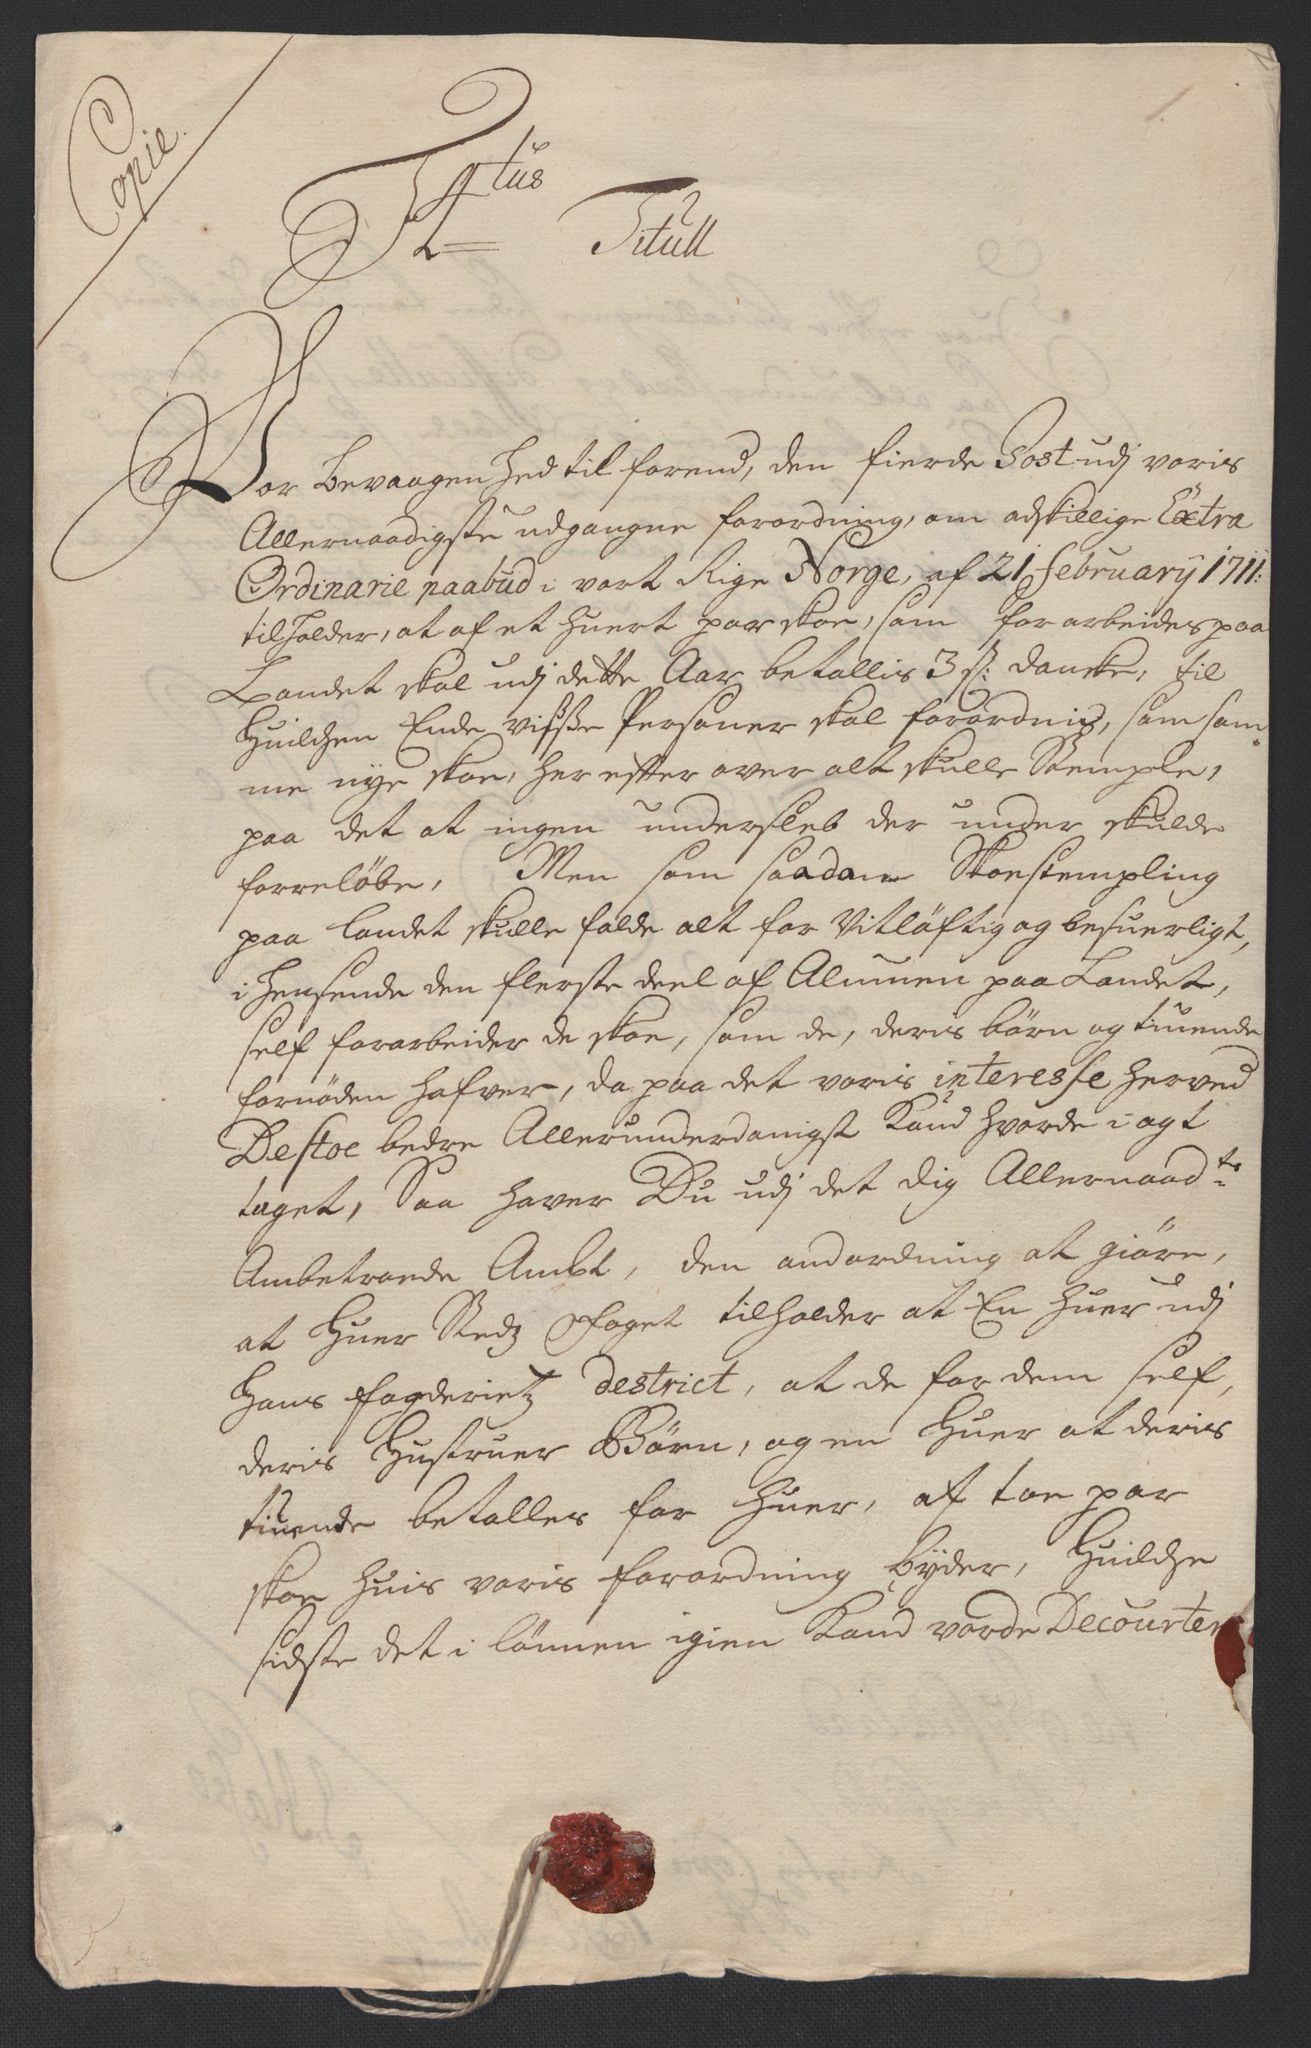 Copie.
F4tus Titull
Vor bevaagenhed til forend, den fierde Post udj voris
Allernaadigste udgangne forordning, om adskillige Extra
Ordinarie paabud i vort Rige Norge, af 21 februarÿ 1711:
tilholder, at af et huert par skoe, som forarbeides paa
Landet skal udj dette Aar betallis 3 s: danske, til
Huilchen Ende visse Personer skal forordnis, som sam-
me nye skoe, her efter over alt skulle Stemple,
paa det at ingen undersleb der under skulde
forreløbe, Men som saadan Skoestempling
paa landet skulle falde alt for Vitløftig og besuerligt,
i henseende den flerste deel af Almuen paa Landet,
self forarbeider de skoe, som de, deris børn og tiuende
fornøden hafver, da paa det voris interesse herved
Destoe bedre Allerunderdanigst Kand hvorde i agt
taget, Saa haver Du udj det dig Allernaadte
Ambetroede Ambt, den andordning at giøre,
at Huer Stedz Foget tilholder at En huer udj
Hans fogderietz destrict, at de for dem self,
deris Hustruer Børn, og en Huer at deris
tiuende betalles for huer, af toe par
skoe huis voris forordning byder, Huilche
sidste det i lønnen igien Kand vorde Decourter